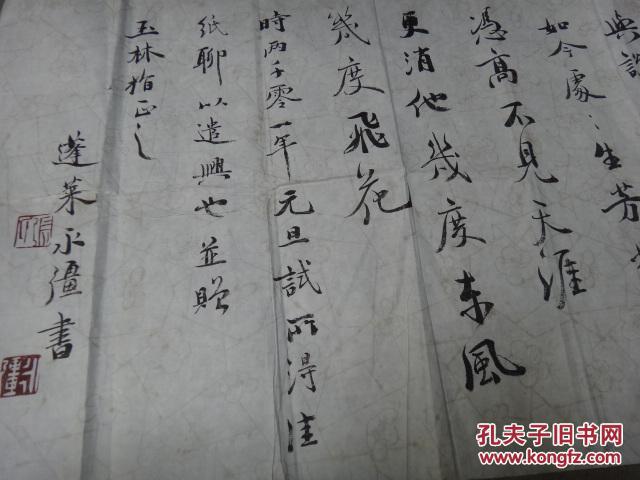 與
如今處〻生芳
憑高不見天涯
更消他幾度東風
幾度飛花
時兩千零一年元旦試所得佳
紙聊以遣興也並贈
玉林指正之
蓬萊永彊書
孔夫子旧书网
www.kongfz.com